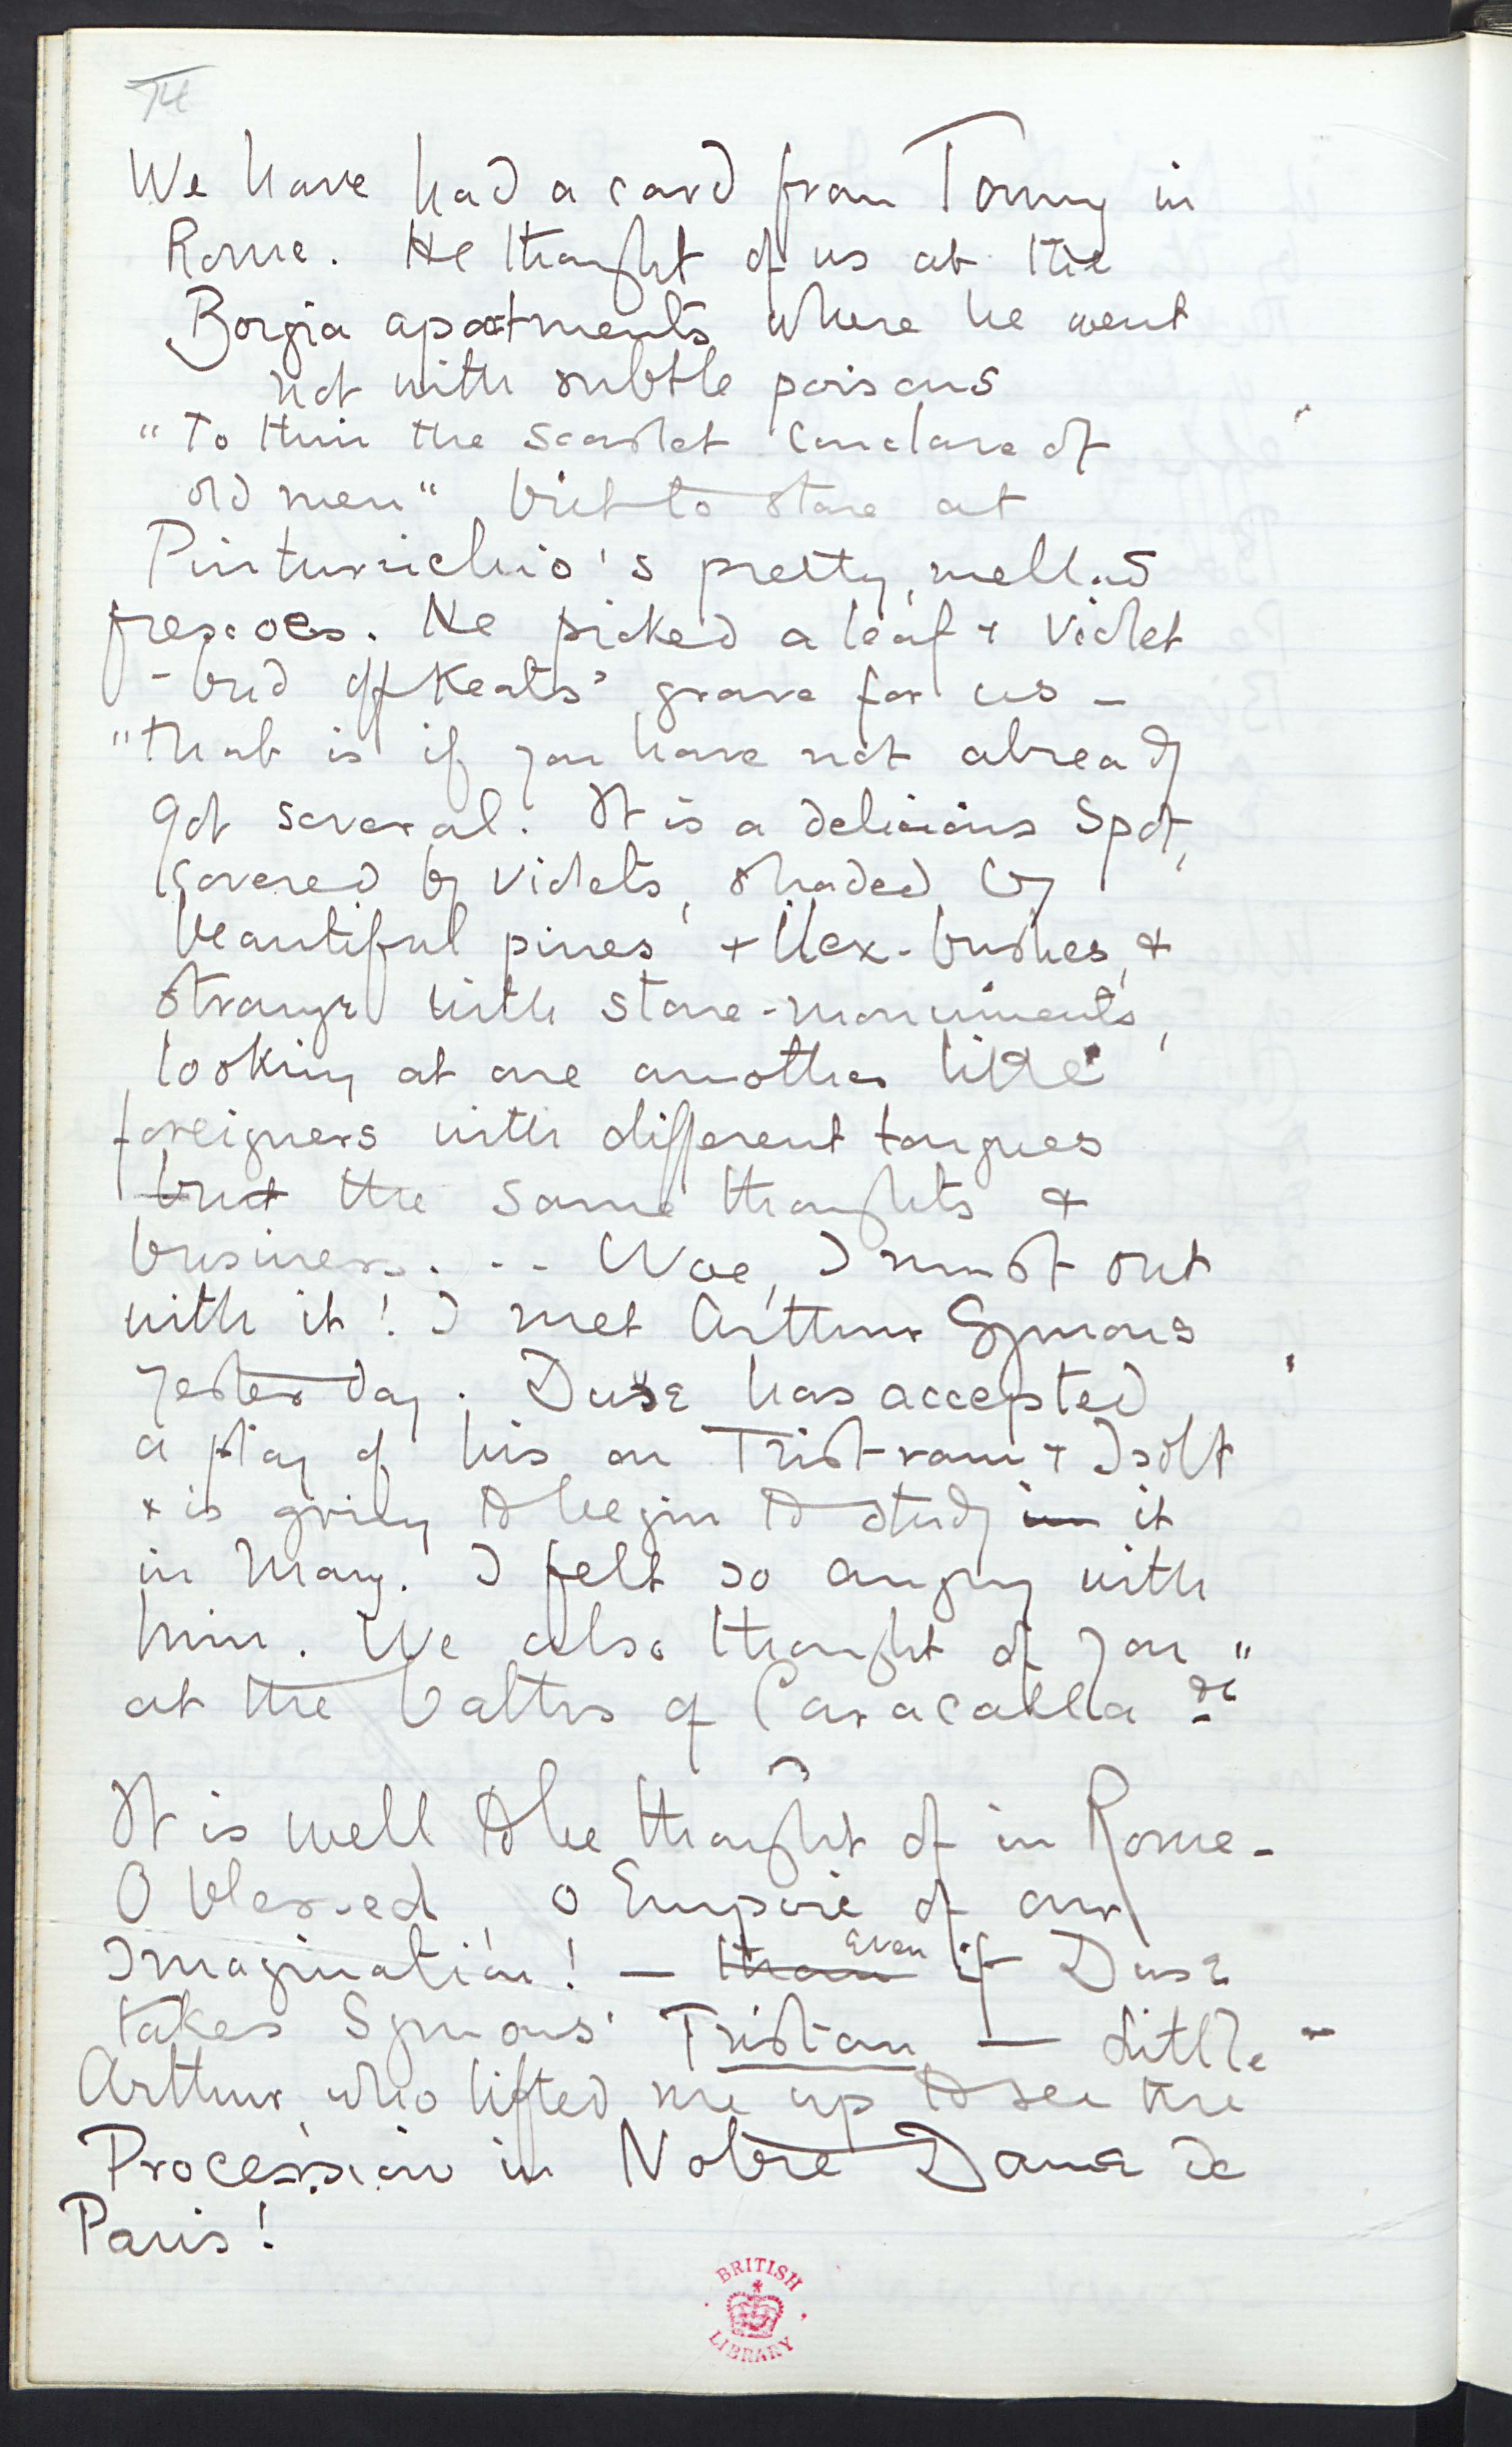 74
We have had a card from Tommy in
Rome. He thought of us at the
Borgia apartments where he went
not with subtle poisons
"To thin the scarlet conclave of
old men" but to stare at
Pinturrichio's pretty, mellow
frescoes. He picked a leaf + violet
-bud off Keats' grave for us -
"that is if you have not already
got several. It is a delicious spot,
covered by violets, shaded by
beautiful pines + ilex-bushes, &
strange with stone-monuments,
looking at one another like
foreigners with different tongues
but the same thoughts &
business... Woe, I must out
with it! I met Arthur Symons
yesterday. Duse has accepted
a play of his on Tristram + Isolt
+ is going to begin to study in it
in May. I felt so angry with
him. We also thought of you
at the baths of Caracalla"
It is well to be thought of in Rome -
O blessed, O Empire of our
Imagination! — than Even if Duse
takes Symons' Tristan — Little
Arthur, who lifted me up to see the
Procession in Notre Dame de
Paris!
BRITISH
LIBRARY